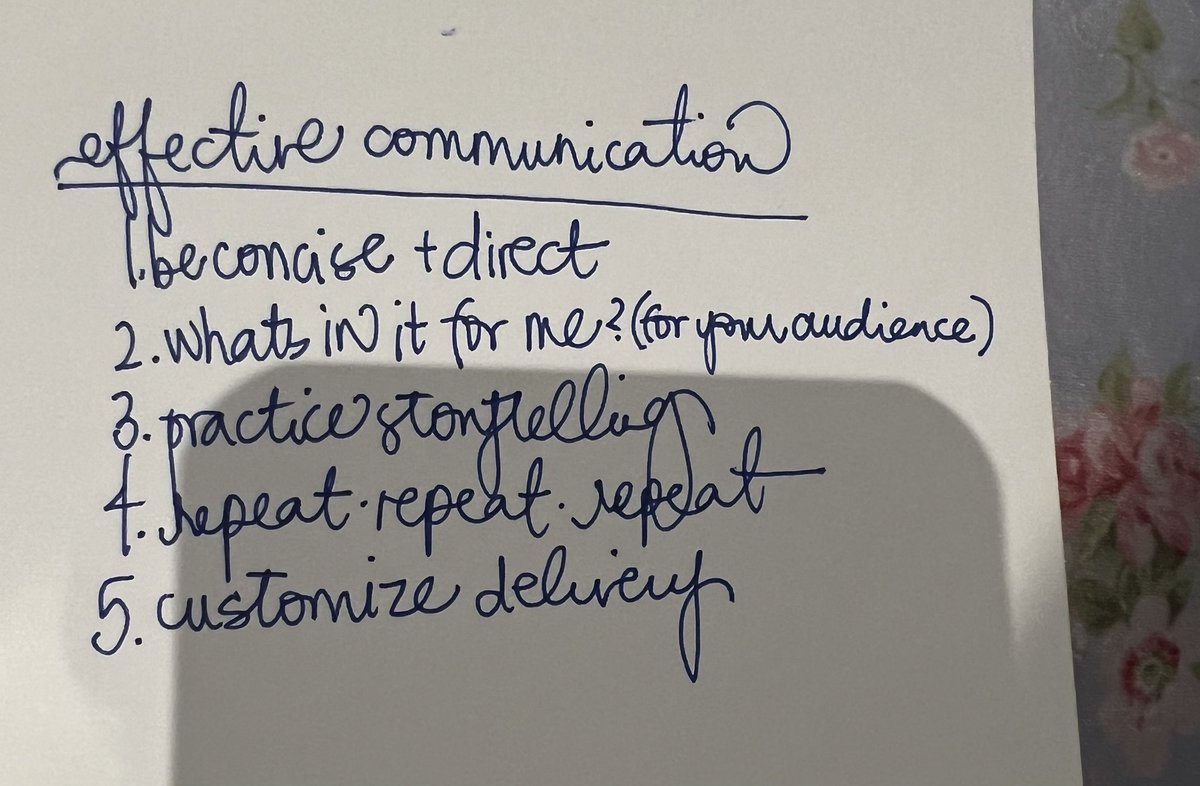 effective communication
1. be concise + direct
2. whats in it for me? (for your audience)
3. practice storytelling
4. repeat. repeat. repeat
5. customize delivery